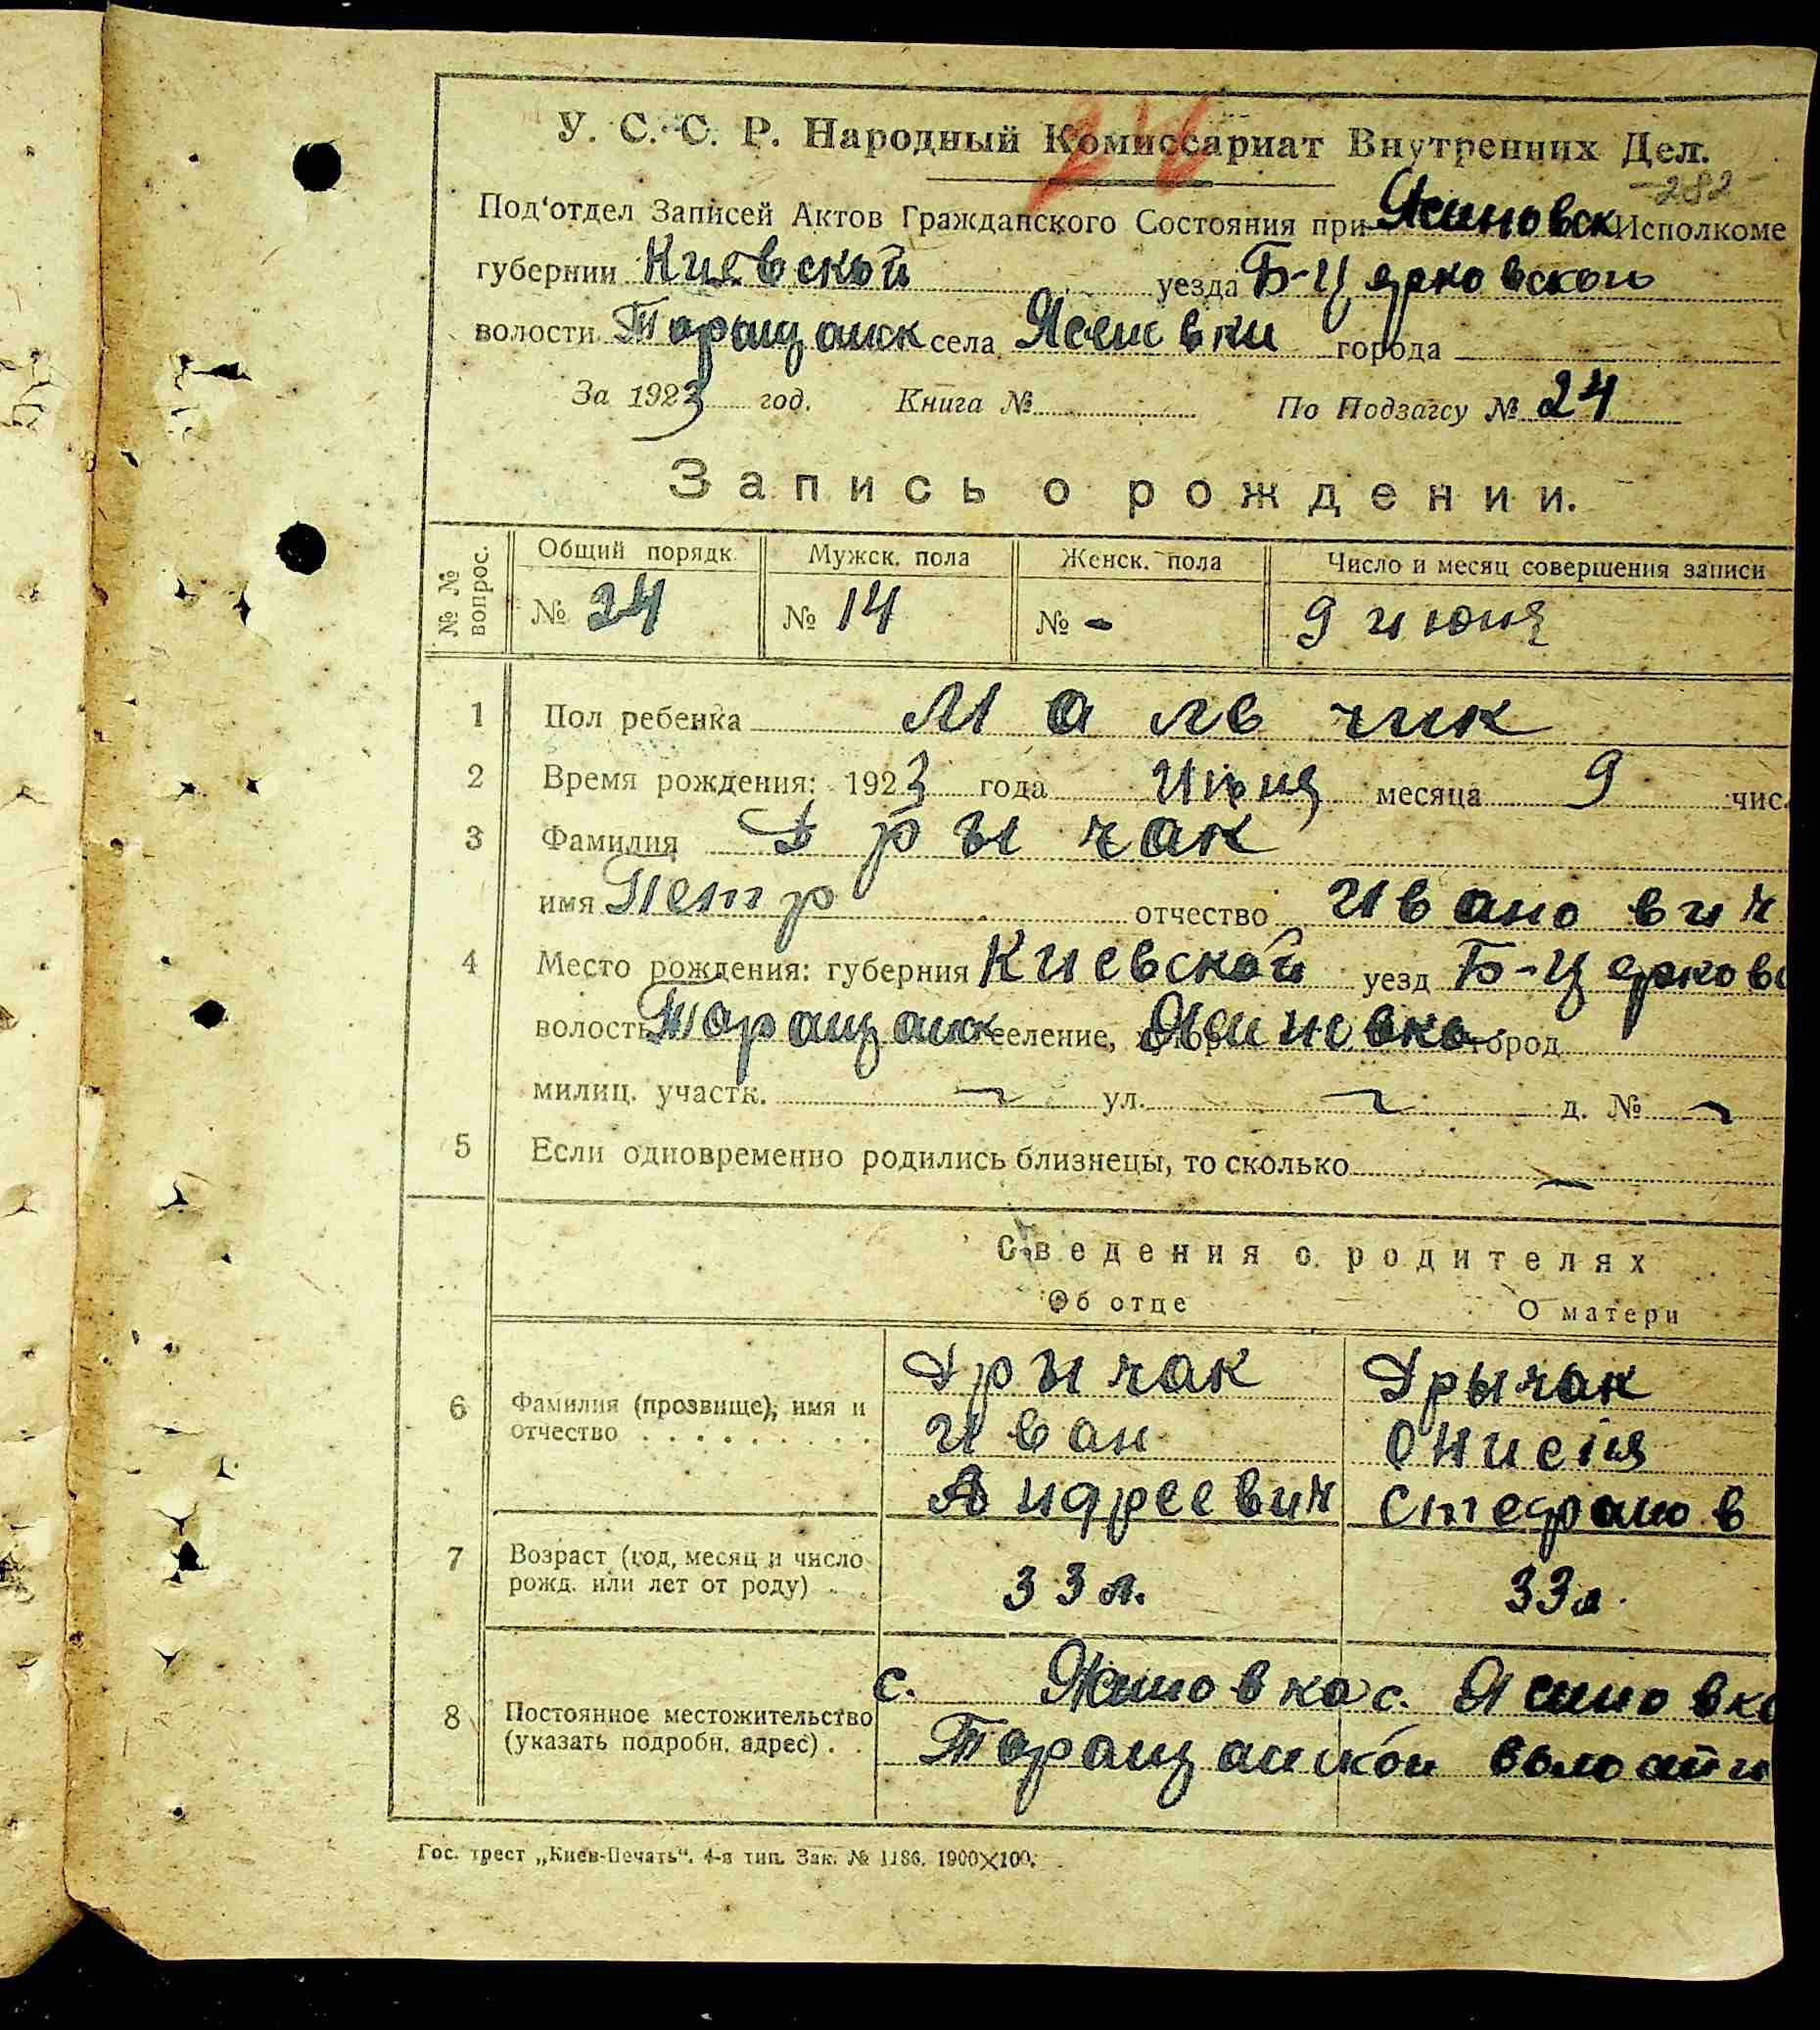 24
У. С. С. Р. Народный Комиссариат Внутренних Дел.
-282-
Под'отдел Записей Актов Гражданского Состояния при Ясиновск Исполкоме
губернии Киевской уезда Б-Церковского
волости Таращанск села Ясиновки города
За 1923 год. Книга № По Подзагсу № 24
Запись о рождении.
№ № вопрос. Общий порядк. Мужск. пола Женск. пола Число и месяц совершения записи
№ 24 № 14 № - 9 июня
1 Пол ребенка Мальчик
2 Время рождения: 1923 года Июня месяца 9 чис.
3 Фамилия Дрычак
имя Петр отчество Иванович
4 Место рождения: губерния Киевской уезд Б-Церковс
волость Таращанск селение, Ясиновка город
милиц. участк. ул. д. №
5 Если одновременно родились близнецы, то сколько
Сведения о родителях
Об отце О матери
6 Фамилия (прозвище), имя и отчество Дрычак Дрычак
Иван Онисія
Андреевич Стефанов
7 Возраст (год, месяц и число рожд. или лет от роду) 33 л. 33 л.
8 Постоянное местожительство (указать подробн. адрес) с. Ясиновка с. Ясиновка
Таращанской волости
Гос. трест „Киев-Печать". 4-я тип. Зак. № 1186. 1900×100.